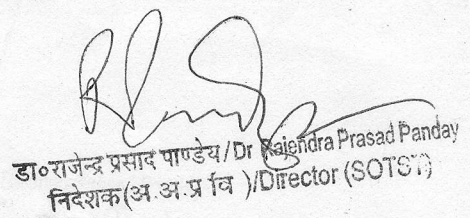 डा०राजेन्द्र प्रसाद पाण्डेय/Dr Rajendra Prasad Panday
निदेशक(अ.अ.प्र वि )/Director (SOTST)